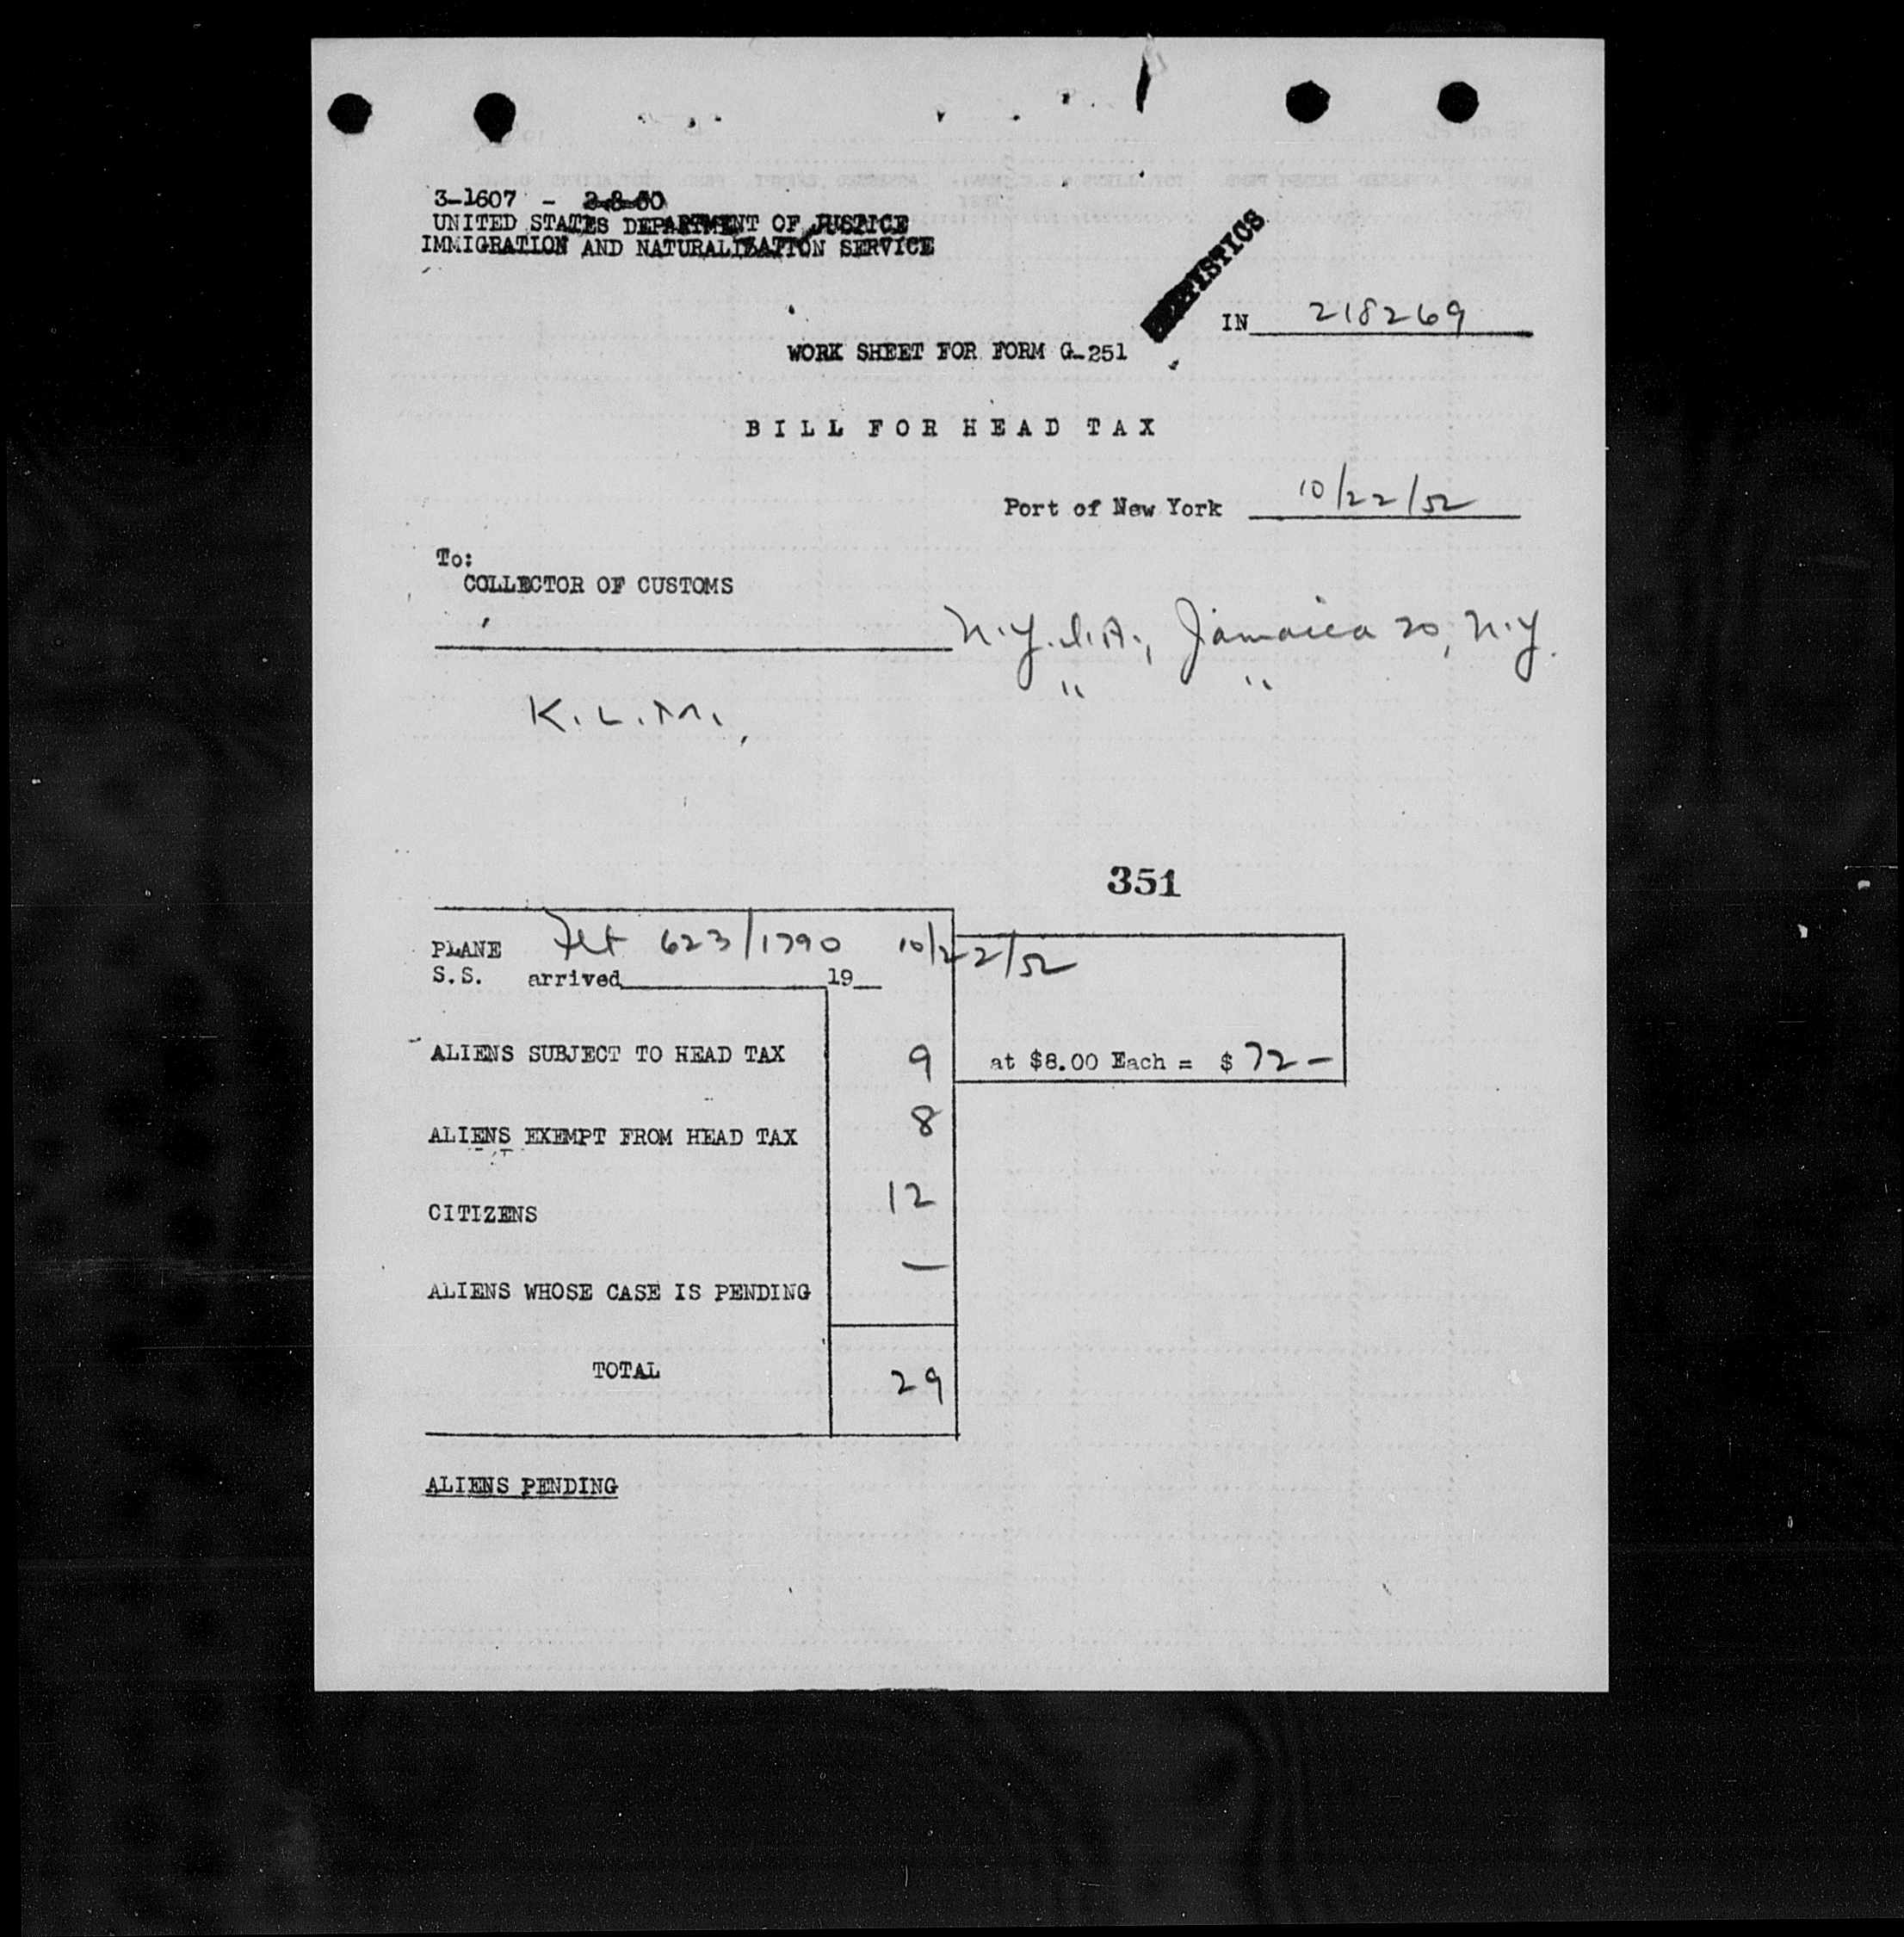 3-1607 - 2-8-50
UNITED STATES DEPARTMENT OF JUSTICE
IMMIGRATION AND NATURALIZATION SERVICE
STATISTICS
IN 218269
WORK SHEET FOR FORM G-251
BILL FOR HEAD TAX
Port of New York 10/22/52
To:
COLLECTOR OF CUSTOMS
N.Y.I.A., Jamaica 20, N.Y.
" "
K.L.M.,
351
PLANE Flt 623/1790 10/22/52
S.S. arrived 19
ALIENS SUBJECT TO HEAD TAX 9 at $8.00 Each = $ 72 -
ALIENS EXEMPT FROM HEAD TAX 8
CITIZENS 12
ALIENS WHOSE CASE IS PENDING —
TOTAL 29
ALIENS PENDING